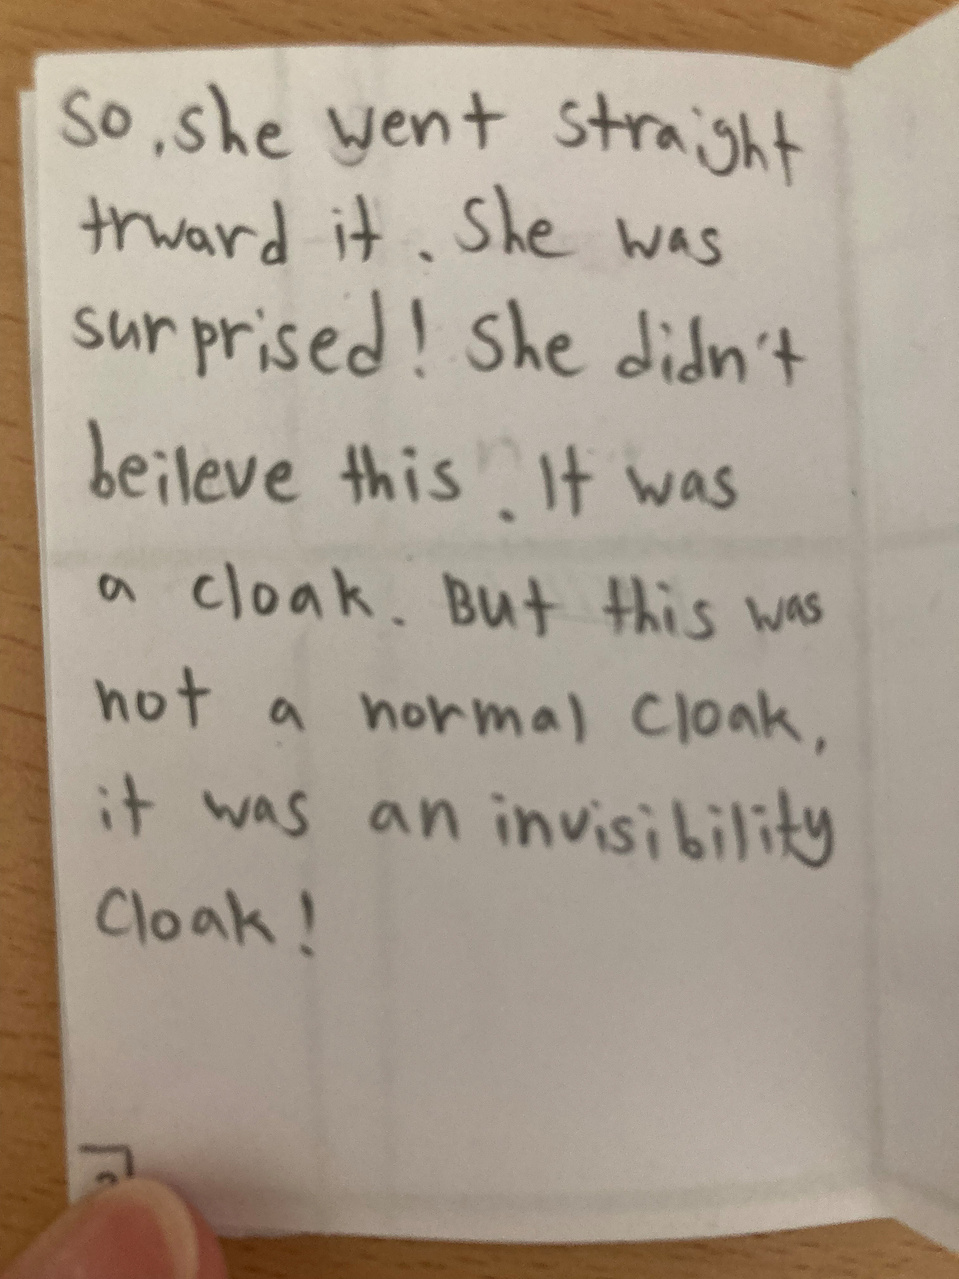 So, she went straight
trward it. She was
surprised! She didn't
beileve this. It was
a cloak. But this was
not a normal cloak,
it was an invisibility
Cloak!